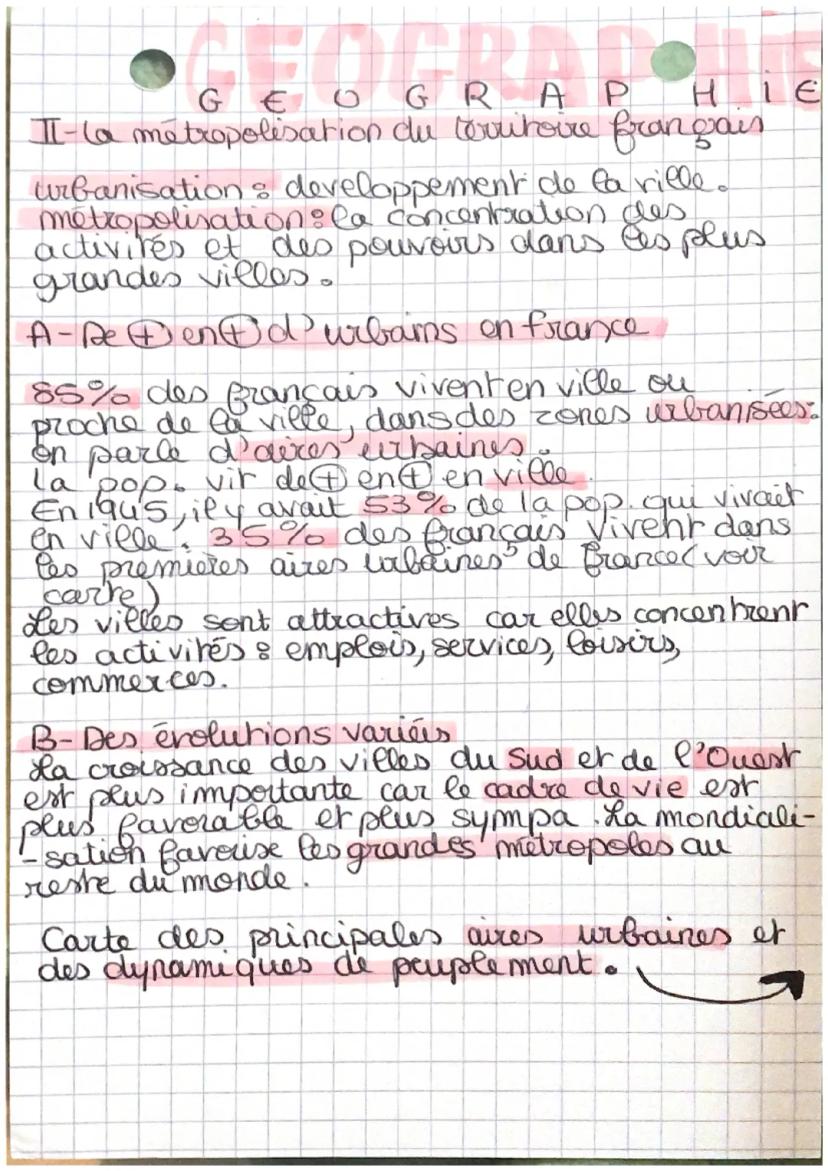 GEOGRAPHIE
G E O G R A P H i E
II-la métropolisation du territoire français
urbanisation : developpement de la ville.
métropolisation : la concentration des
activités et des pouvoirs dans les plus
grandes villes.
A-De + en + d'urbains en france
85% des français vivent en ville ou
proche de la ville, dans des zones urbanisées.
on parle d'aires urbaines.
la pop. vit de + en + en ville
En 1945, il y avait 53% de la pop. qui vivait
en ville. 35% des français vivent dans
les premières aires urbaines de france (voir
carte)
Les villes sont attractives car elles concentrent
les activités : emplois, services, loisirs,
commerces.
B-Des évolutions variées
La croissance des villes du Sud et de l'Ouest
est plus importante car le cadre de vie est
plus favorable et plus sympa. La mondiali-
-sation favorise les grandes métropoles au
reste du monde.
Carte des principales aires urbaines et
des dynamiques de peuplement.